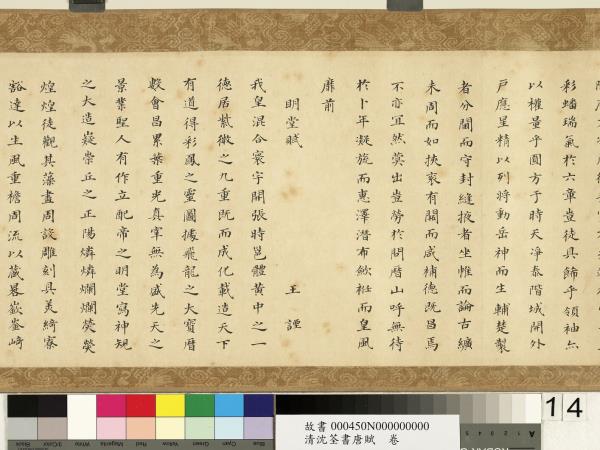 彩蟠瑞氣於六章豈徒具飾乎領袖亦
以權量乎圓方于時天淨泰階域開外
戶應星精以列將動岳神而生輔楚製
者分閫而守封縫掖者坐帷而論古纊
未周而如挾裘有闕而咸補德既昌焉
不亦宜然蓂出豈勞於問曆山呼無待
於卜年凝旒而惠澤潛布斂袵而皇風
靡前
明堂賦 王諲
我皇混合寰宇開張時邕體黃中之一
德居紫微之九重既而成化載造天下
有道得彩鳳之靈圖據飛龍之大寶曆
數會昌累葉重光真宰無為感先天之
景業聖人有作立配帝之明堂寫神規
之大造嶷崇丘之正陽燐燐爛爛熒熒
煌煌徒觀其藻畫周設雕刻具美綺寮
豁達以生風重檐周流以藏晷嶔崟崎
14
故書 000450N000000000
清沈荃書唐賦 卷
Black 3/Color White Magenta Red Yellow Green Cyan Blue